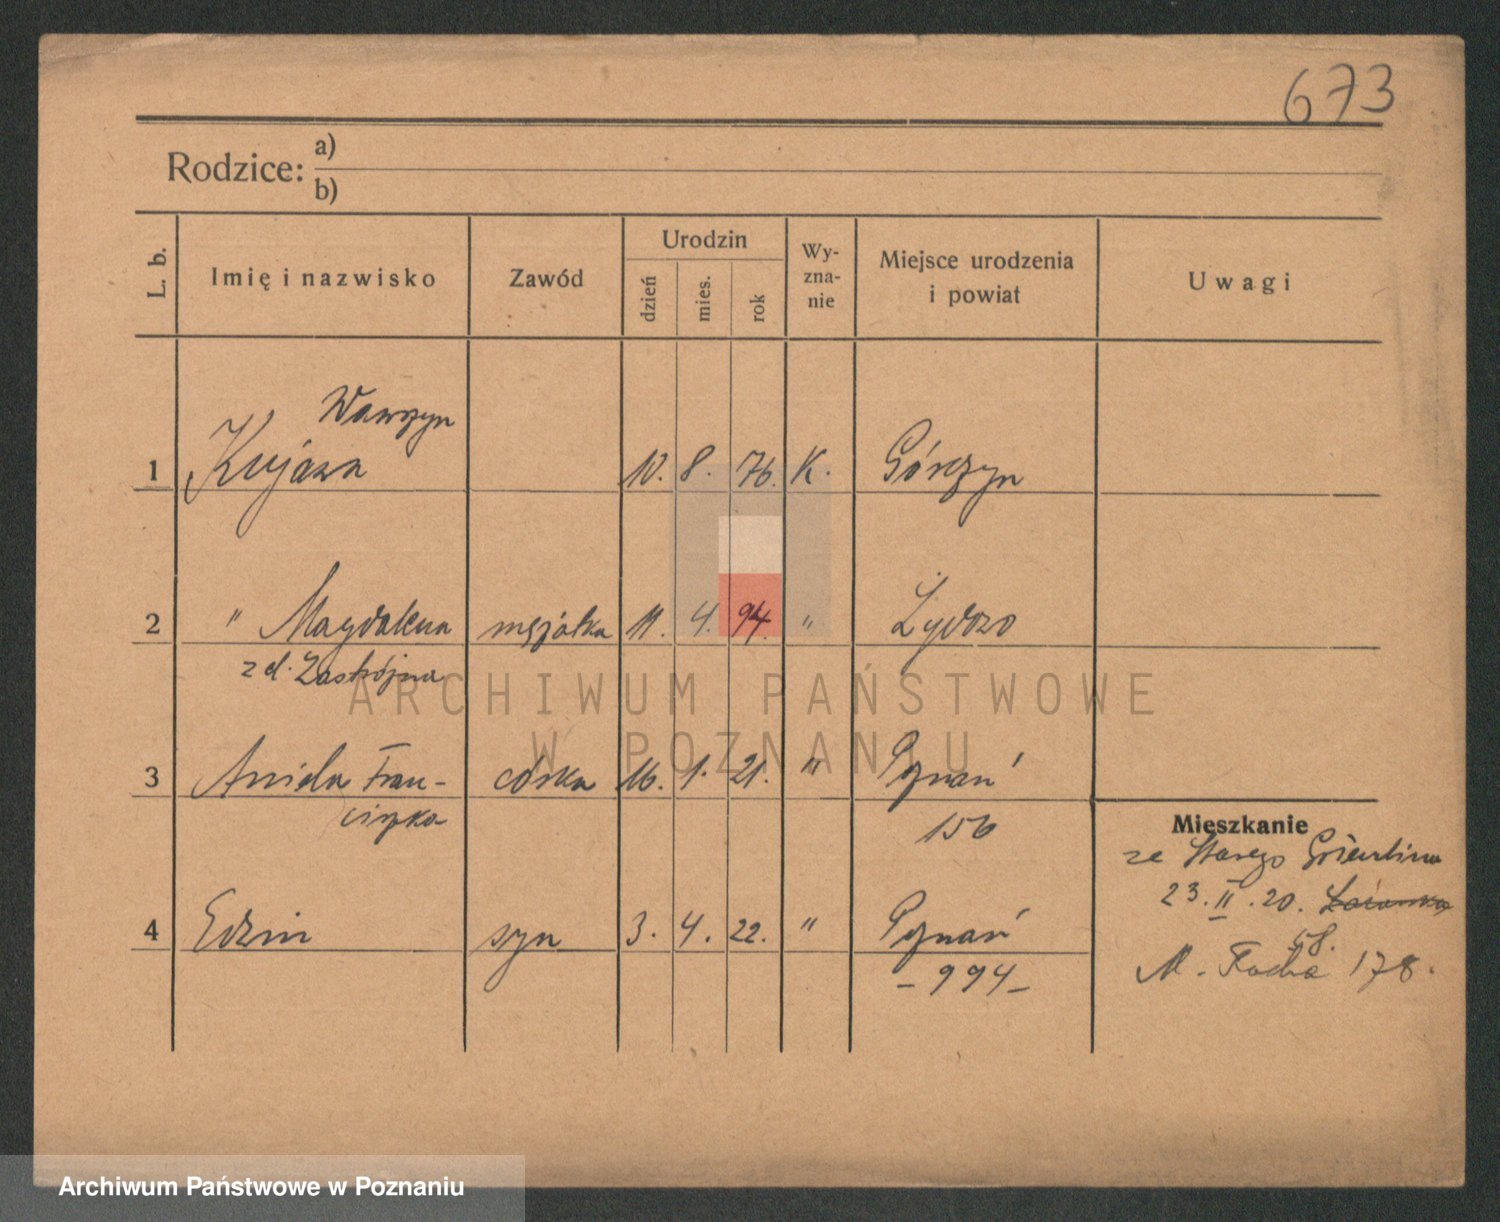 673
Rodzice: a)
b)
L. b.
Imię i nazwisko
Zawód
Urodzin
dzień
mies.
rok
Wy-
zna-
nie
Miejsce urodzenia
i powiat
Uwagi
Wawrzyn
1 Kujawa 10. 8. 76. K. Górczyn
2 " Magdalena mężatka 11. 4. 94. "
z d.
ARCHIWUM PAŃSTWOWE
W POZNANIU
3 Aniela Fran- córka 16. 1. 21. " Poznań
ciszka 156
Mieszkanie
ze Starego
23. II. 20.
4 Edwin syn 3. 4. 22. " Poznań
58.
- 994 - M. Focha 178.
Archiwum Państwowe w Poznaniu